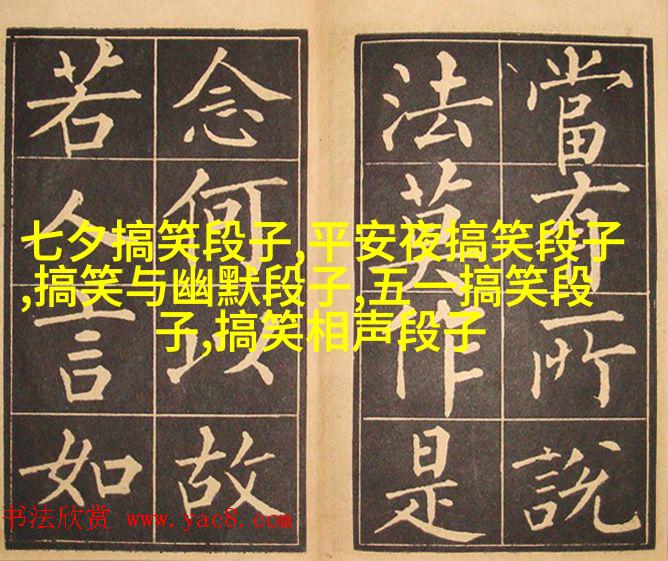 當有所說
法莫作是
念何以故
若人言如
七夕搞笑段子,平安夜搞笑段子
,搞笑与幽默段子,五一搞笑段
子,搞笑相声段子
书法欣赏 www.yac8.com